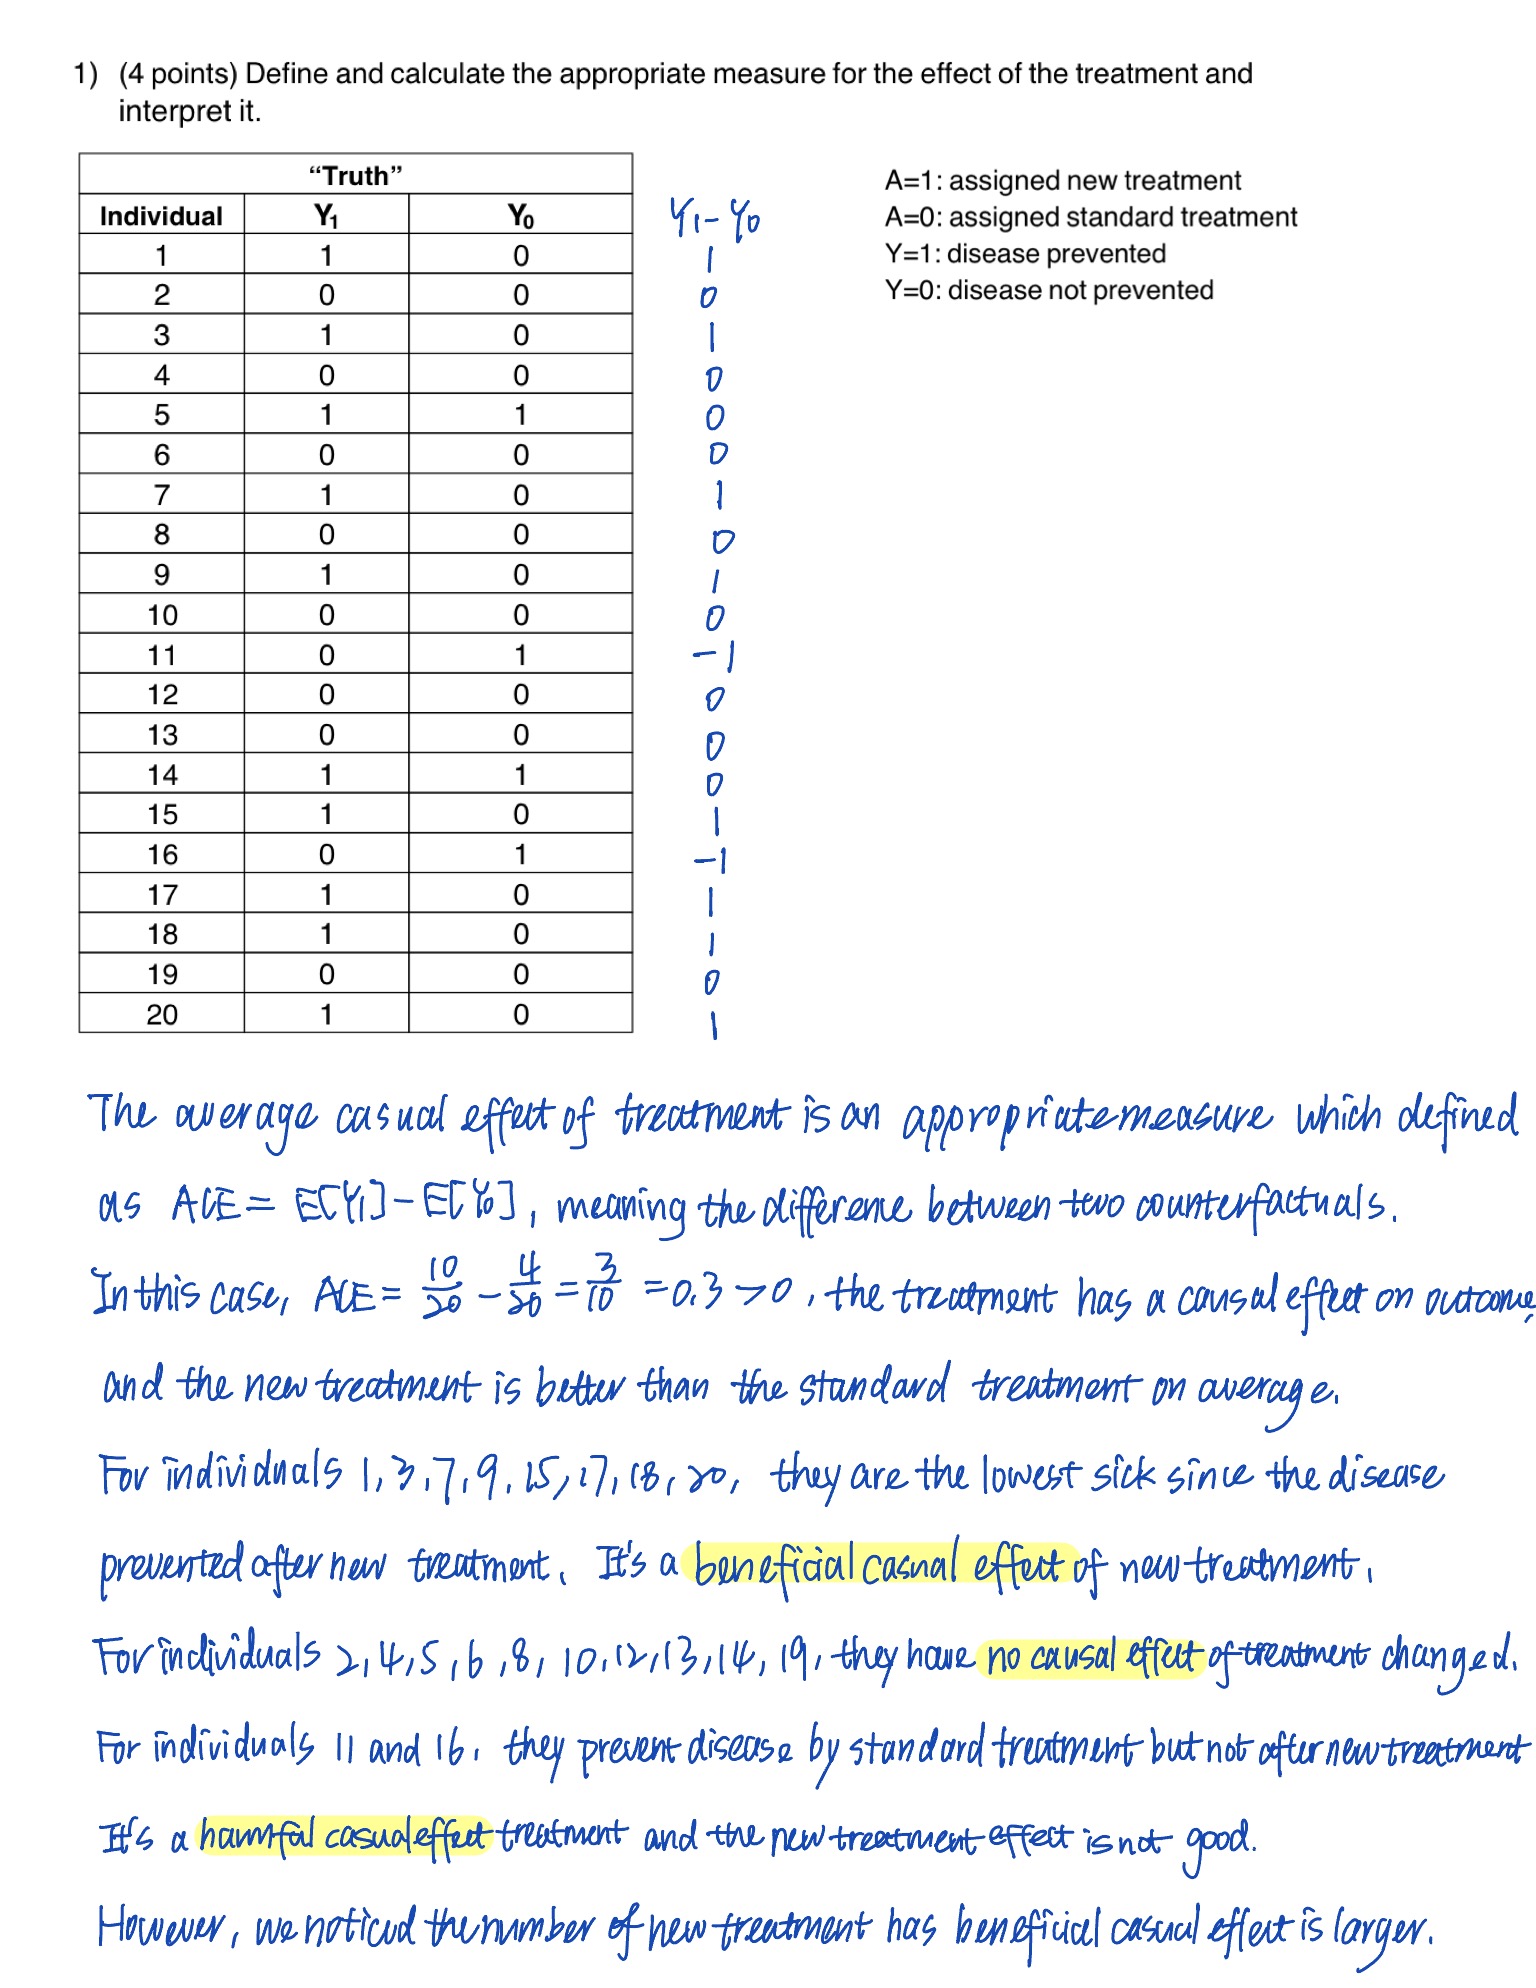 1) (4 points) Define and calculate the appropriate measure for the effect of the treatment and
interpret it.
“Truth”
Individual Y₁ Y₀ Y₁-Y₀
1 1 0 1
2 0 0 0
3 1 0 1
4 0 0 0
5 1 1 0
6 0 0 0
7 1 0 1
8 0 0 0
9 1 0 1
10 0 0 0
11 0 1 -1
12 0 0 0
13 0 0 0
14 1 1 0
15 1 0 1
16 0 1 -1
17 1 0 1
18 1 0 1
19 0 0 0
20 1 0 1
A=1: assigned new treatment
A=0: assigned standard treatment
Y=1: disease prevented
Y=0: disease not prevented
The average casual effect of treatment is an appropriate measure which defined
as ACE = E[Y₁] - E[Y₀], meaning the difference between two counterfactuals.
In this case, ACE = 10/20 - 4/20 = 3/10 = 0.3 > 0, the treatment has a causal effect on outcome,
and the new treatment is better than the standard treatment on average.
For individuals 1, 3, 7, 9, 15, 17, 18, 20, they are the lowest sick since the disease
prevented after new treatment. It's a beneficial casual effect of new treatment.
For individuals 2, 4, 5, 6, 8, 10, 12, 13, 14, 19, they have no causal effect of treatment changed.
For individuals 11 and 16, they prevent disease by standard treatment but not after new treatment
It's a harmful casual effect treatment and the new treatment effect is not good.
However, we noticed the number of new treatment has beneficial casual effect is larger.